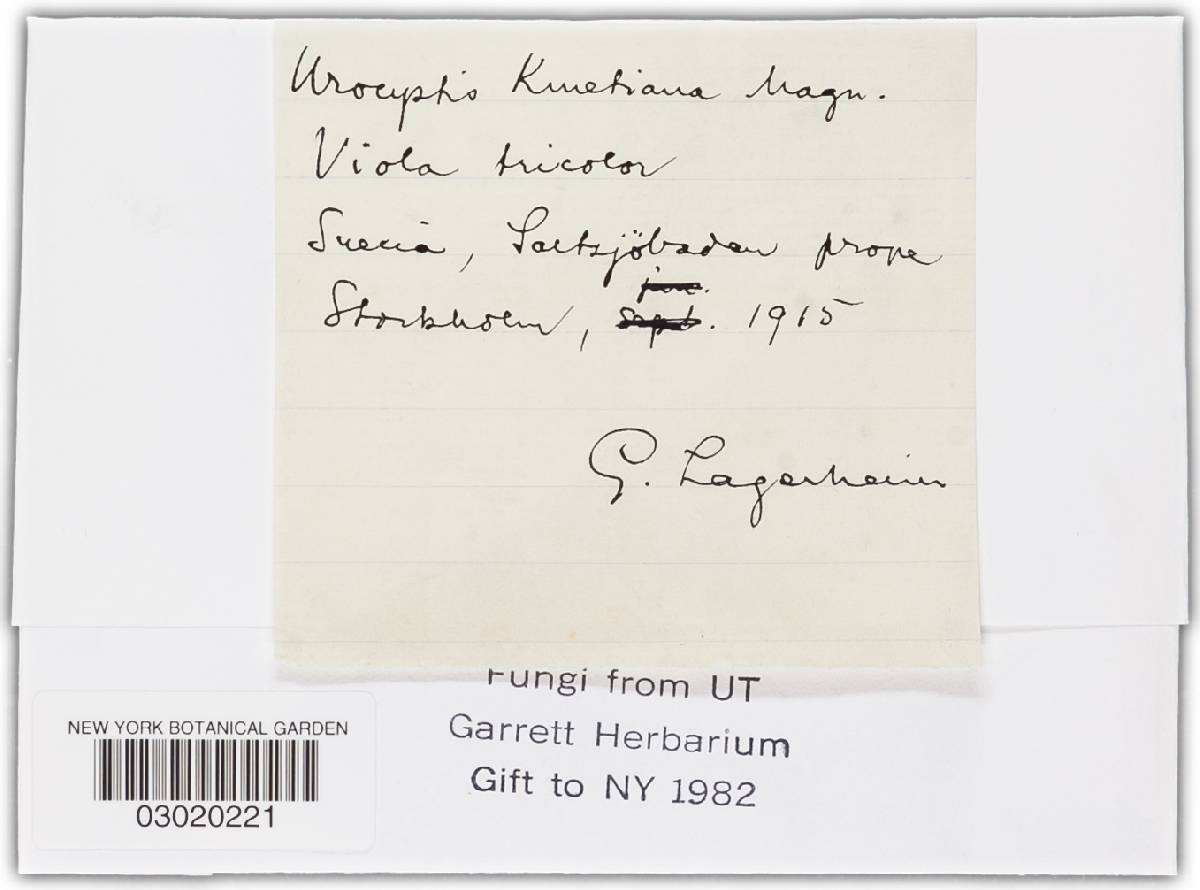 Urocystis Kmetiana Magn.
Viola tricolor
Suecia, Saltsjöbaden prope
jun.
Stockholm, sept. 1915
G. Lagerheim
Fungi from UT
Garrett Herbarium
Gift to NY 1982
NEW YORK BOTANICAL GARDEN
03020221